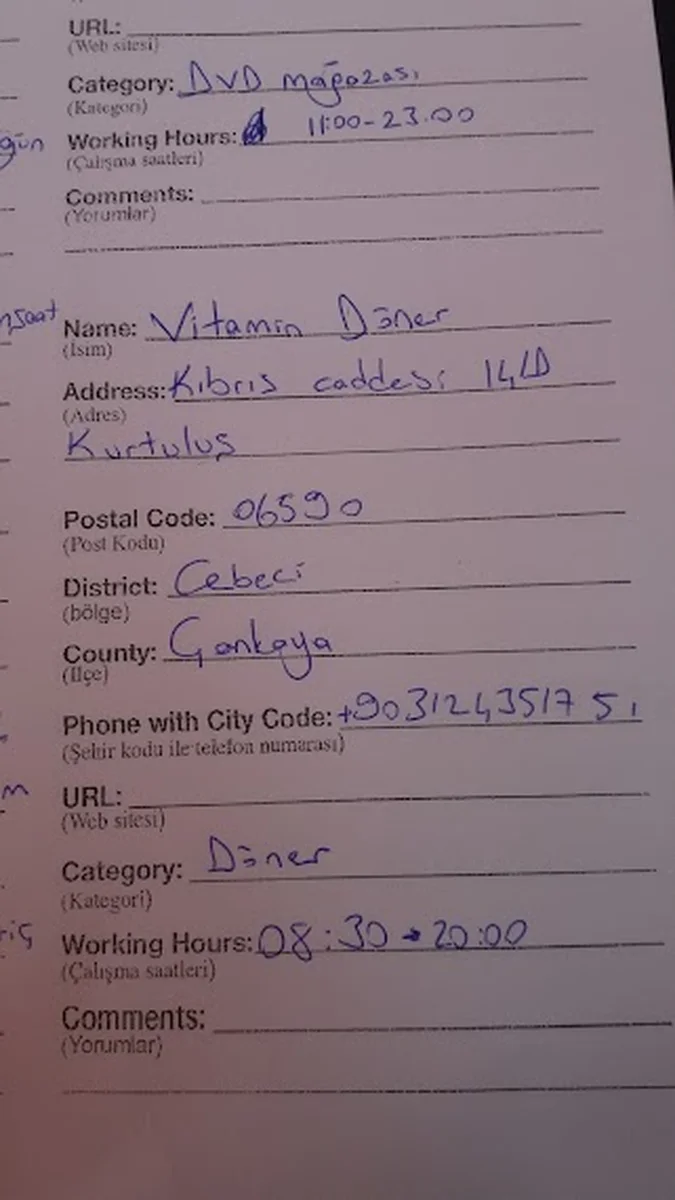 URL:
(Web sitesi)
Category: DVD mağazası
(Kategori)
gün
Working Hours: 11:00-23.00
(Çalışma saatleri)
Comments:
(Yorumlar)
Name: Vitamin Döner
(İsim)
Address: Kıbrıs caddesi 14/D
(Adres)
Kurtuluş
Postal Code: 06590
(Post Kodu)
District: Cebeci
(bölge)
County: Çankaya
(İlçe)
Phone with City Code: +903124351751
(Şehir kodu ile telefon numarası)
URL:
(Web sitesi)
Category: Döner
(Kategori)
Working Hours: 08:30 → 20:00
(Çalışma saatleri)
Comments:
(Yorumlar)